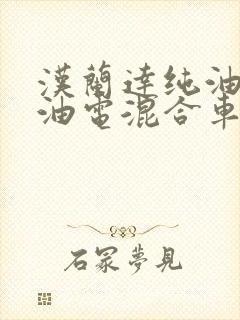 漢蘭達纯油
油電混合車
石冢夢見